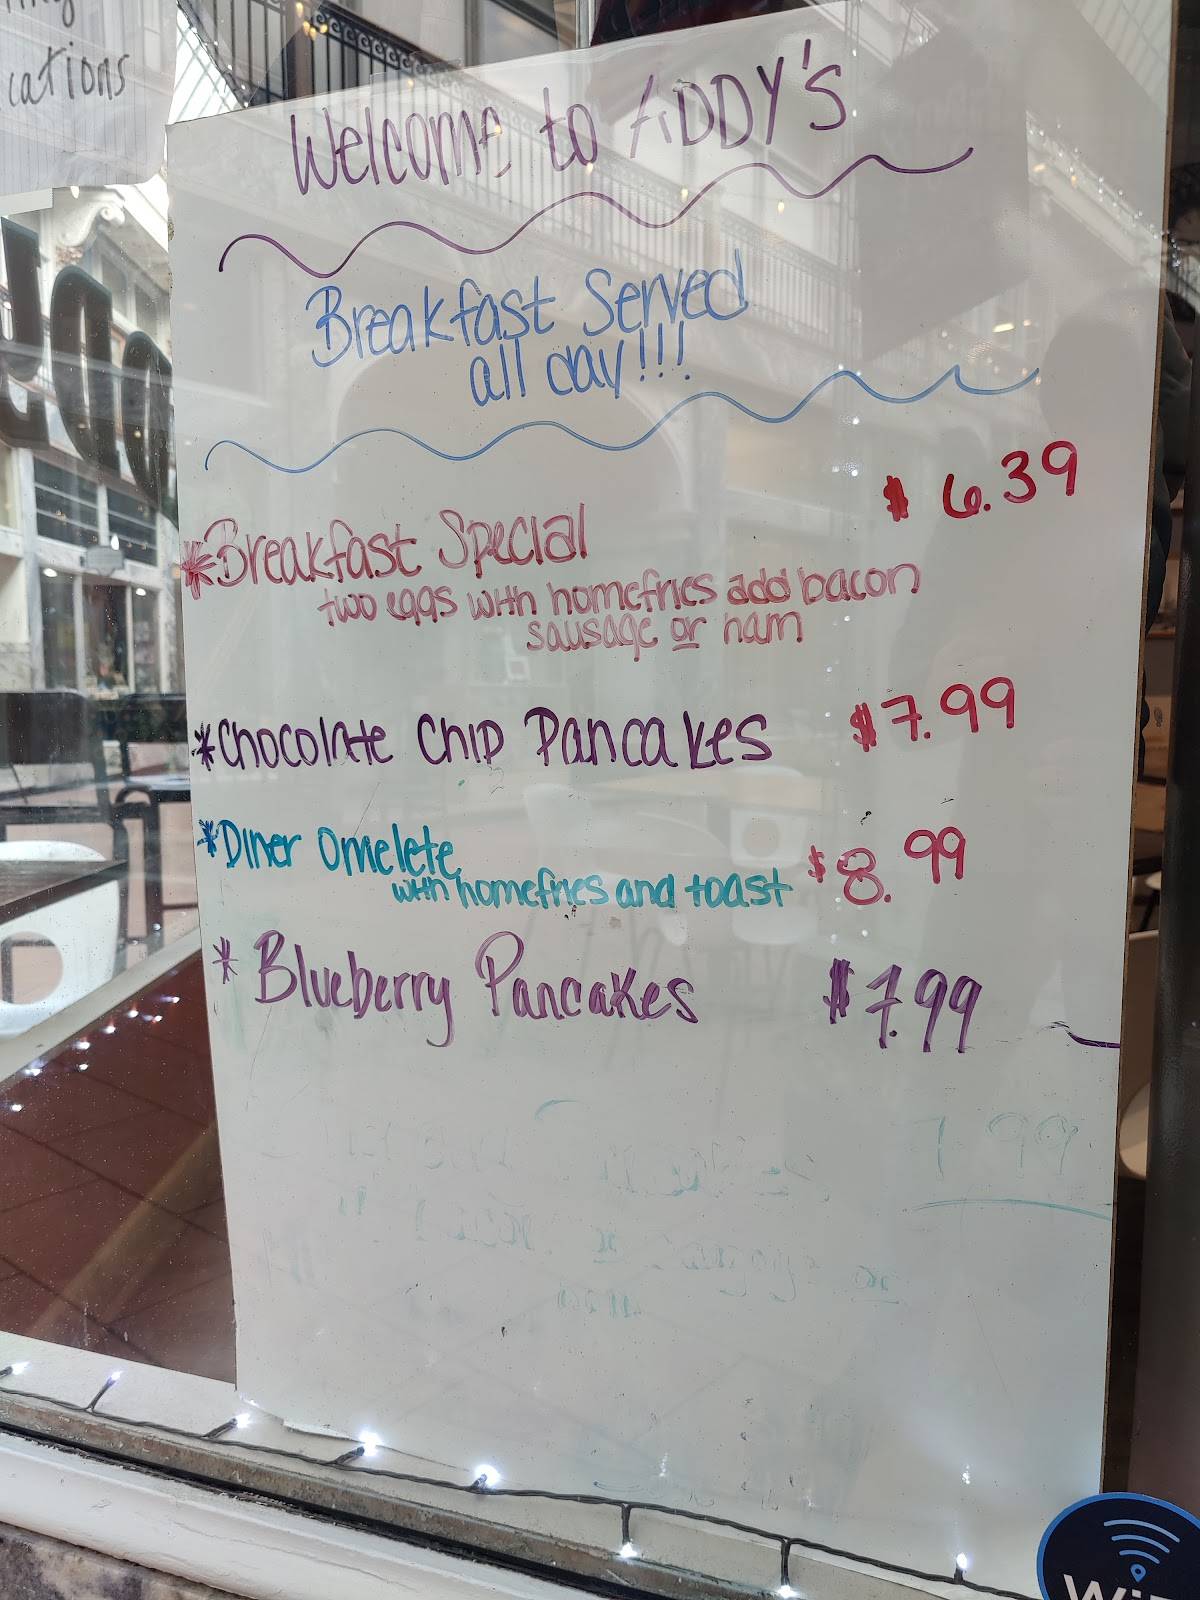 cations
Welcome to ADDY'S
Breakfast Served
all day!!!
$6.39
*Breakfast Special
two eggs with homefries add bacon
sausage or ham
*Chocolate Chip Pancakes $7.99
*Diner Omelete $8.99
with homefries and toast
* Blueberry Pancakes $7.99
7.99